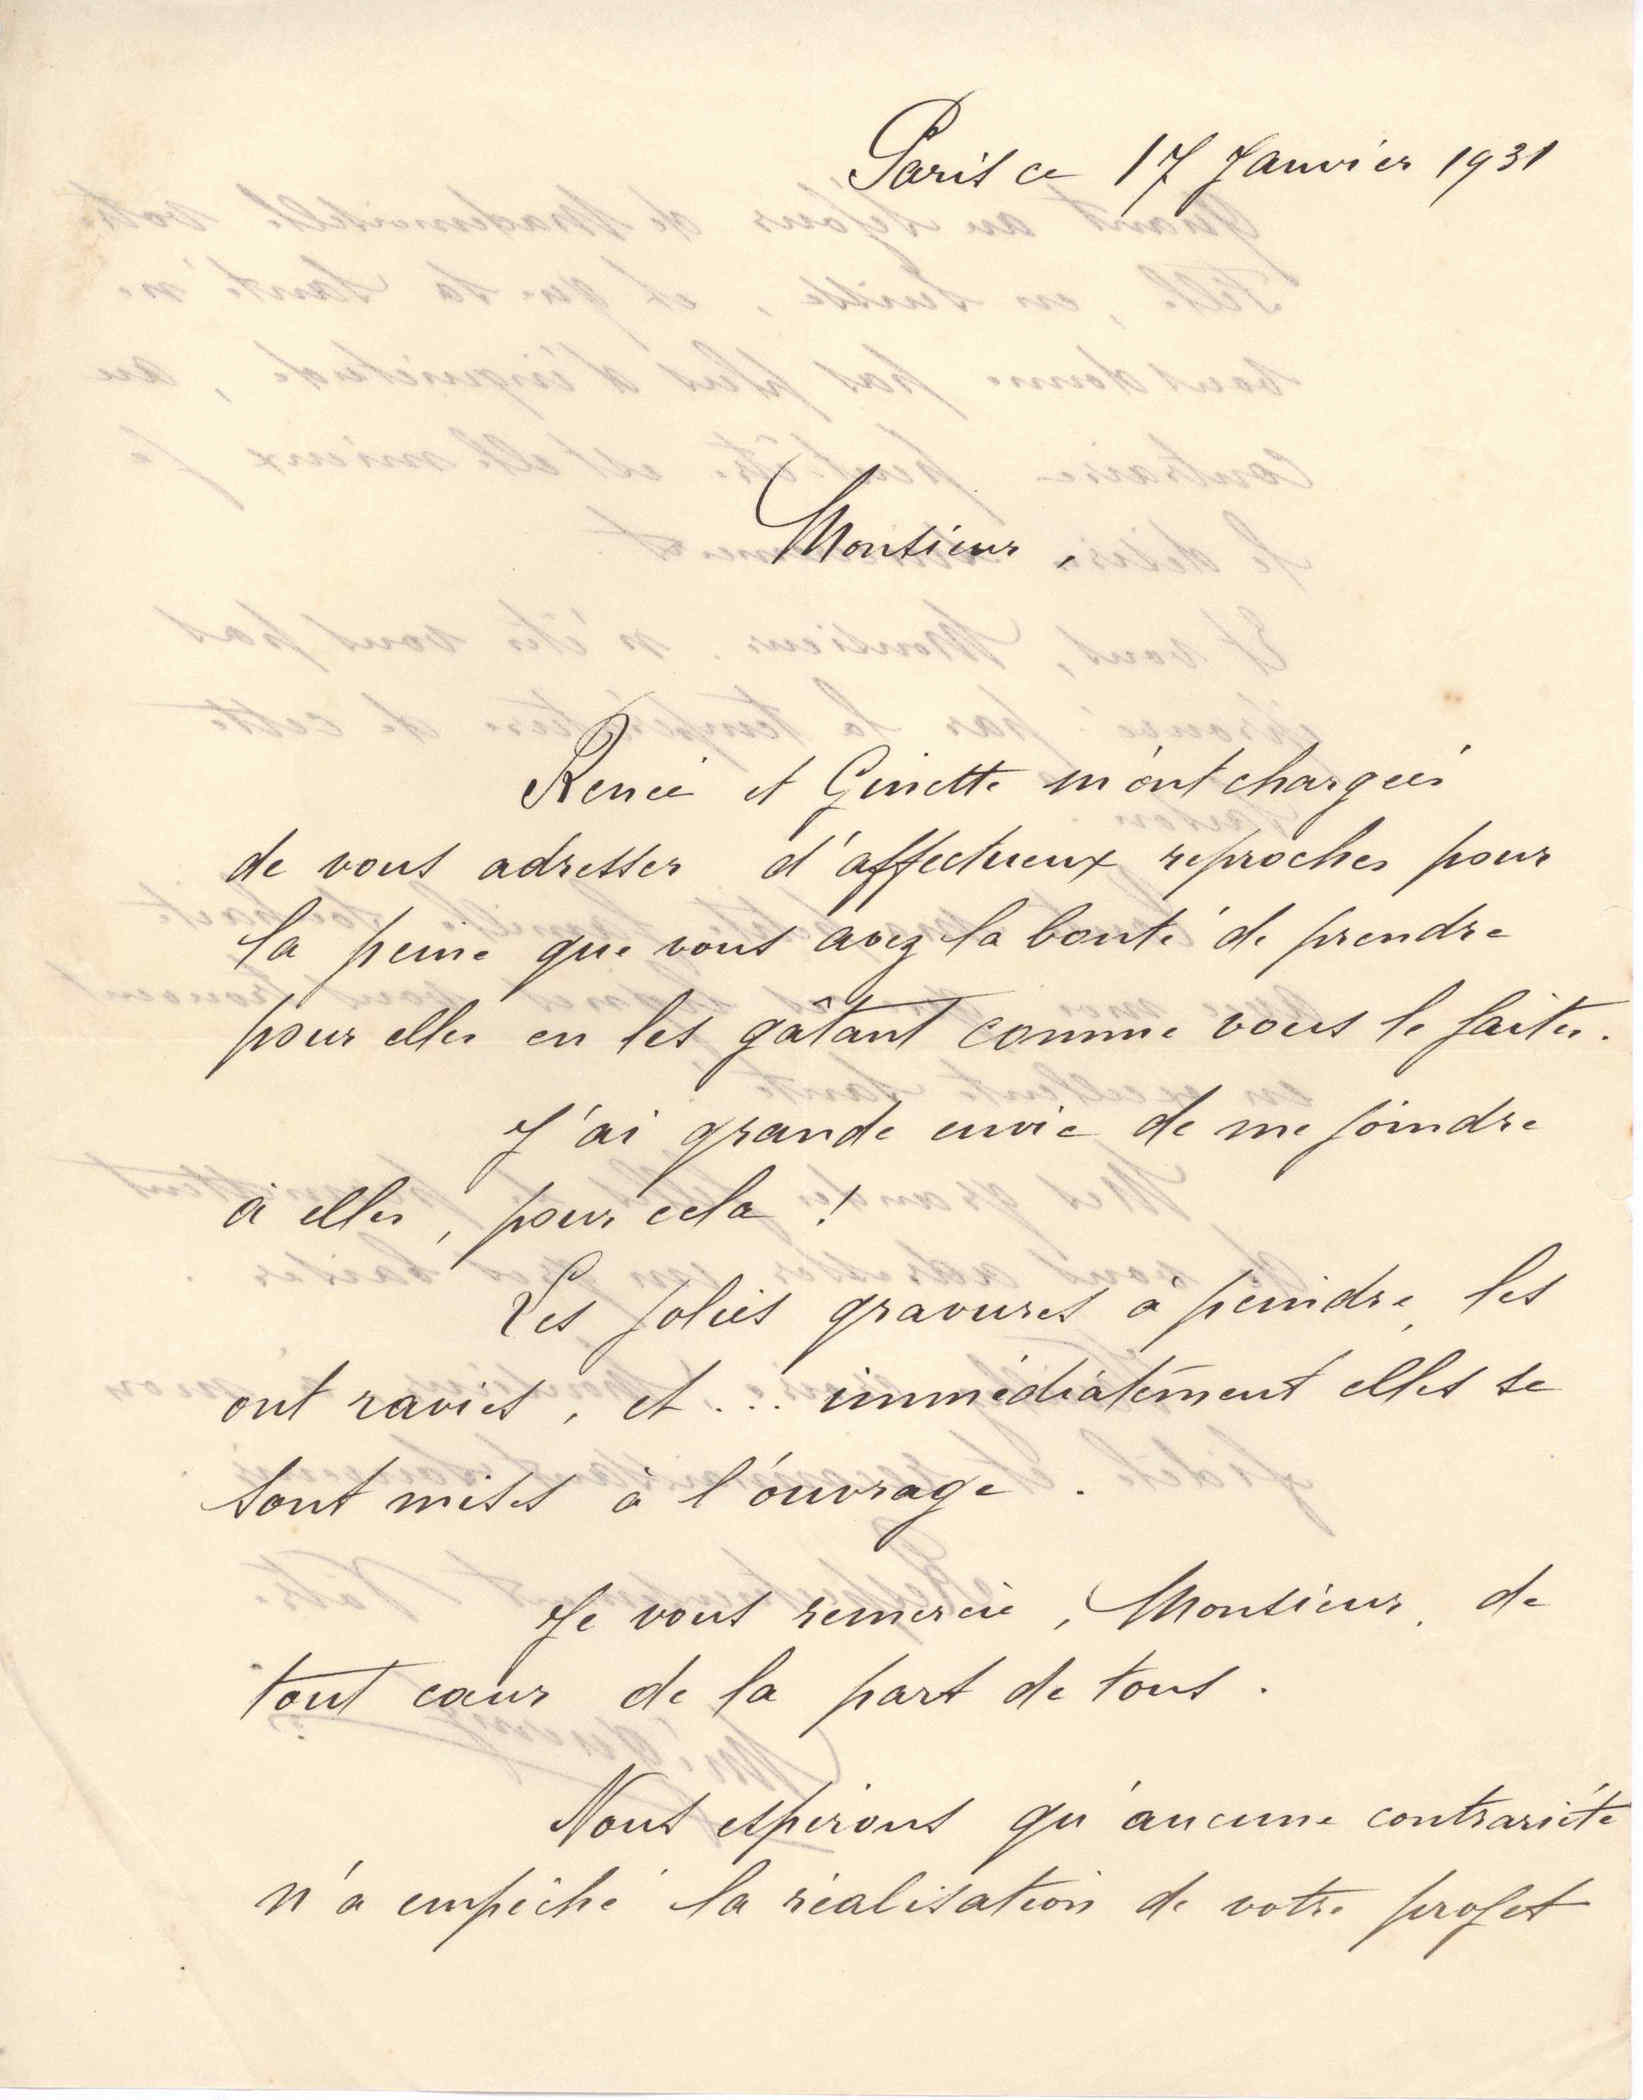 Paris ce 17 Janvier 1931
Monsieur,
Renée et Ginette m'ont chargées
de vous adresser d'affectueux reproches pour
la peine que vous avez la bonté de prendre
pour elles en les gâtant comme vous le faites.
J'ai grande envie de me joindre
à elles, pour cela !
Les jolies gravures à peindre, les
ont ravies, et... immédiatement elles se
sont mises à l'ouvrage.
Je vous remercie, Monsieur, de
tout cœur de la part de tous.
Nous espérons qu'aucune contrariété
n'a empêché la réalisation de votre projet